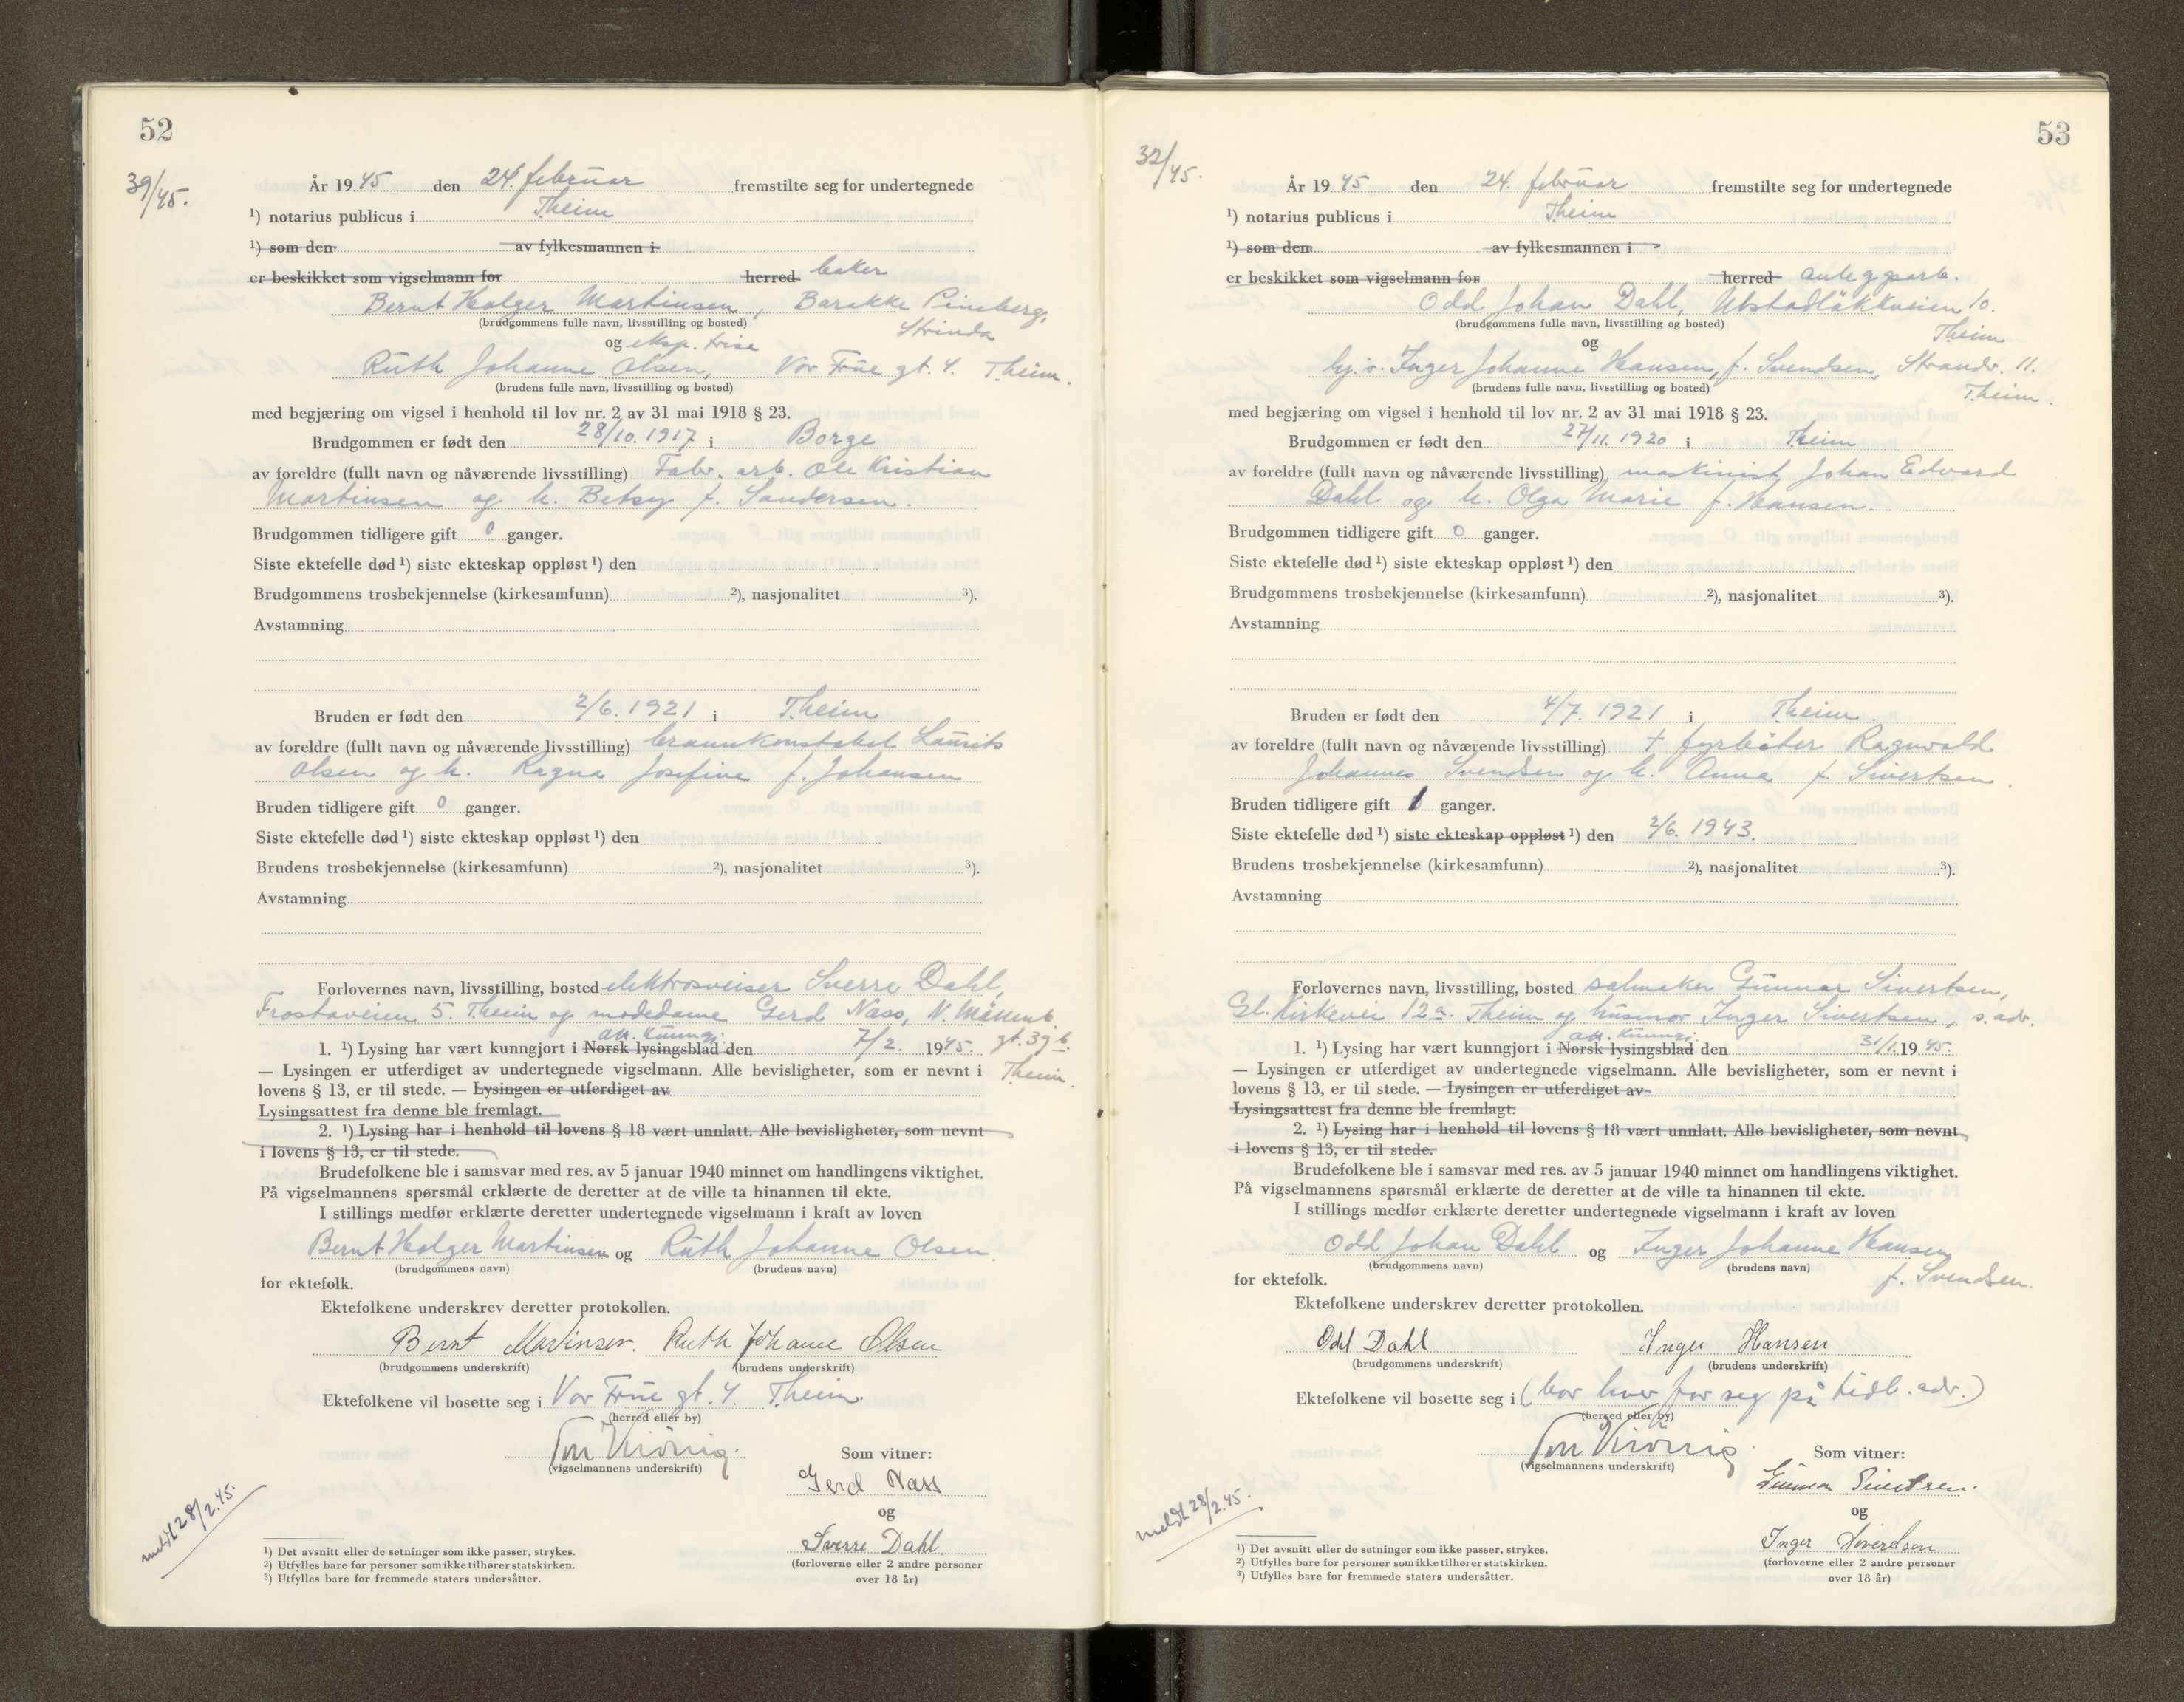 52
39/45.
År 1945 den 24. februar fremstilte seg for undertegnede
¹) notarius publicus i Theim
¹) som den av fylkesmannen i
er beskikket som vigselmann for herred baker
Bernt Holger Martinsen, Barakke Pineberg,
Strinda
(brudgommens fulle navn, livsstilling og bosted)
og eksp. trise
Ruth Johanne Olsen, Vor Frue gt. 4. Theim.
(brudens fulle navn, livsstilling og bosted)
med begjæring om vigsel i henhold til lov nr. 2 av 31 mai 1918 § 23.
Brudgommen er født den 28/10. 1917 i Borge
av foreldre (fullt navn og nåværende livsstilling) Fabr. arb. Ole Kristian
Martinsen og h. Betsy f. Sandersen.
Brudgommen tidligere gift 0 ganger.
Siste ektefelle død ¹) siste ekteskap oppløst ¹) den
Brudgommens trosbekjennelse (kirkesamfunn) ²), nasjonalitet ³).
Avstamning
Bruden er født den 2/6. 1921 i Theim
av foreldre (fullt navn og nåværende livsstilling) brannkonstabel Laurits
Olsen og h. Ragna Josefine f. Johansen
Bruden tidligere gift 0 ganger.
Siste ektefelle død ¹) siste ekteskap oppløst ¹) den
Brudens trosbekjennelse (kirkesamfunn) ²), nasjonalitet ³).
Avstamning
Forlovernes navn, livsstilling, bosted elektrosveiser Sverre Dahl,
Frostaveien 5. Theim og modedame Gerd Nass, N. Møllenb
gt. 39 b.
Theim.
att. kunngj.
1. ¹) Lysing har vært kunngjort i Norsk lysingsblad den 7/2. 1945.
— Lysingen er utferdiget av undertegnede vigselmann. Alle bevisligheter, som er nevnt i
lovens § 13, er til stede. — Lysingen er utferdiget av
Lysingsattest fra denne ble fremlagt.
2. ¹) Lysing har i henhold til lovens § 18 vært unnlatt. Alle bevisligheter, som nevnt
i lovens § 13, er til stede.
Brudefolkene ble i samsvar med res. av 5 januar 1940 minnet om handlingens viktighet.
På vigselmannens spørsmål erklærte de deretter at de ville ta hinannen til ekte.
I stillings medfør erklærte deretter undertegnede vigselmann i kraft av loven
Bernt Holger Martinsen og Ruth Johanne Olsen.
(brudgommens navn) (brudens navn)
for ektefolk.
Ektefolkene underskrev deretter protokollen.
Bernt Martinsen. Ruth Johanne Olsen
(brudgommens underskrift) (brudens underskrift)
Ektefolkene vil bosette seg i Vor Frue gt. 4. Theim.
(herred eller by)
(vigselmannens underskrift)
Som vitner:
Gerd Nass
og
Sverre Dahl
(forloverne eller 2 andre personer
over 18 år)
meldt 28/2.45.
¹) Det avsnitt eller de setninger som ikke passer, strykes.
²) Utfylles bare for personer som ikke tilhører statskirken.
³) Utfylles bare for fremmede staters undersåtter.
53
32/45.
År 1945 den 24. februar fremstilte seg for undertegnede
¹) notarius publicus i Theim
¹) som den av fylkesmannen i
er beskikket som vigselmann for herred anleggsarb.
Odd Johan Dahl, Ubstadløkkveien 10.
Theim
(brudgommens fulle navn, livsstilling og bosted)
og
hj.v. Inger Johanne Hansen, f. Svendsen, Strandv. 11.
Theim.
(brudens fulle navn, livsstilling og bosted)
med begjæring om vigsel i henhold til lov nr. 2 av 31 mai 1918 § 23.
Brudgommen er født den 27/11. 1920 i Theim
av foreldre (fullt navn og nåværende livsstilling) maskinist Johan Edvard
Dahl og h. Olga Marie f. Hansen.
Brudgommen tidligere gift 0 ganger.
Siste ektefelle død ¹) siste ekteskap oppløst ¹) den
Brudgommens trosbekjennelse (kirkesamfunn) ²), nasjonalitet ³).
Avstamning
Bruden er født den 4/7. 1921 i Theim.
av foreldre (fullt navn og nåværende livsstilling) † fyrbøter Ragnvald
Johannes Svendsen og h. Anna f. Sivertsen.
Bruden tidligere gift 1 ganger.
Siste ektefelle død ¹) siste ekteskap oppløst ¹) den 2/6. 1943.
Brudens trosbekjennelse (kirkesamfunn) ²), nasjonalitet ³).
Avstamning
Forlovernes navn, livsstilling, bosted salmaker Gunnar Sivertsen,
Gl. Kirkevei 12a. Theim og husmor Inger Sivertsen, s. adr.
att. kunngj.
1. ¹) Lysing har vært kunngjort i Norsk lysingsblad den 31/1. 1945.
— Lysingen er utferdiget av undertegnede vigselmann. Alle bevisligheter, som er nevnt i
lovens § 13, er til stede. — Lysingen er utferdiget av
Lysingsattest fra denne ble fremlagt.
2. ¹) Lysing har i henhold til lovens § 18 vært unnlatt. Alle bevisligheter, som nevnt
i lovens § 13, er til stede.
Brudefolkene ble i samsvar med res. av 5 januar 1940 minnet om handlingens viktighet.
På vigselmannens spørsmål erklærte de deretter at de ville ta hinannen til ekte.
I stillings medfør erklærte deretter undertegnede vigselmann i kraft av loven
Odd Johan Dahl og Inger Johanne Hansen,
f. Svendsen.
(brudgommens navn) (brudens navn)
for ektefolk.
Ektefolkene underskrev deretter protokollen.
Odd Dahl Inger Hansen
(brudgommens underskrift) (brudens underskrift)
Ektefolkene vil bosette seg i (bor hver for seg på tidl. adr.)
(herred eller by)
(vigselmannens underskrift)
Som vitner:
Gunnar Sivertsen.
og
Inger Sivertsen
(forloverne eller 2 andre personer
over 18 år)
meldt 28/2.45.
¹) Det avsnitt eller de setninger som ikke passer, strykes.
²) Utfylles bare for personer som ikke tilhører statskirken.
³) Utfylles bare for fremmede staters undersåtter.